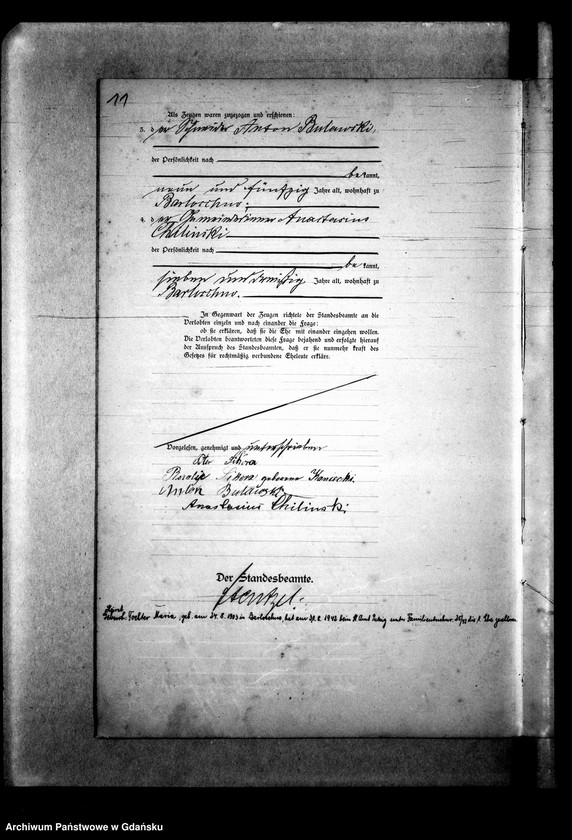 11
Als Zeugen waren zugezogen und erschienen:
3. der Schneider Anton Bulawski,
der Persönlichkeit nach
bekannt,
neun und fünfzig Jahre alt, wohnhaft zu
Barlochno;
4. der Anastasius
Chilinski
der Persönlichkeit nach
bekannt,
sieben und dreißig Jahre alt, wohnhaft zu
Barlochno.
In Gegenwart der Zeugen richtete der Standesbeamte an die
Verlobten einzeln und nach einander die Frage:
ob sie erklären, daß sie die Ehe mit einander eingehen wollen.
Die Verlobten beantworteten diese Frage bejahend und erfolgte hierauf
der Ausspruch des Standesbeamten, daß er sie nunmehr kraft des
Gesetzes für rechtmäßig verbundene Eheleute erkläre.
Vorgelesen, genehmigt und unterschrieben
Sikora
Sikora geborene
Anton Bulawski
Anastasius Chilinski
Der Standesbeamte.
Maria, geb. am in Barlochno, hat am 1943 beim
Archiwum Państwowe w Gdańsku